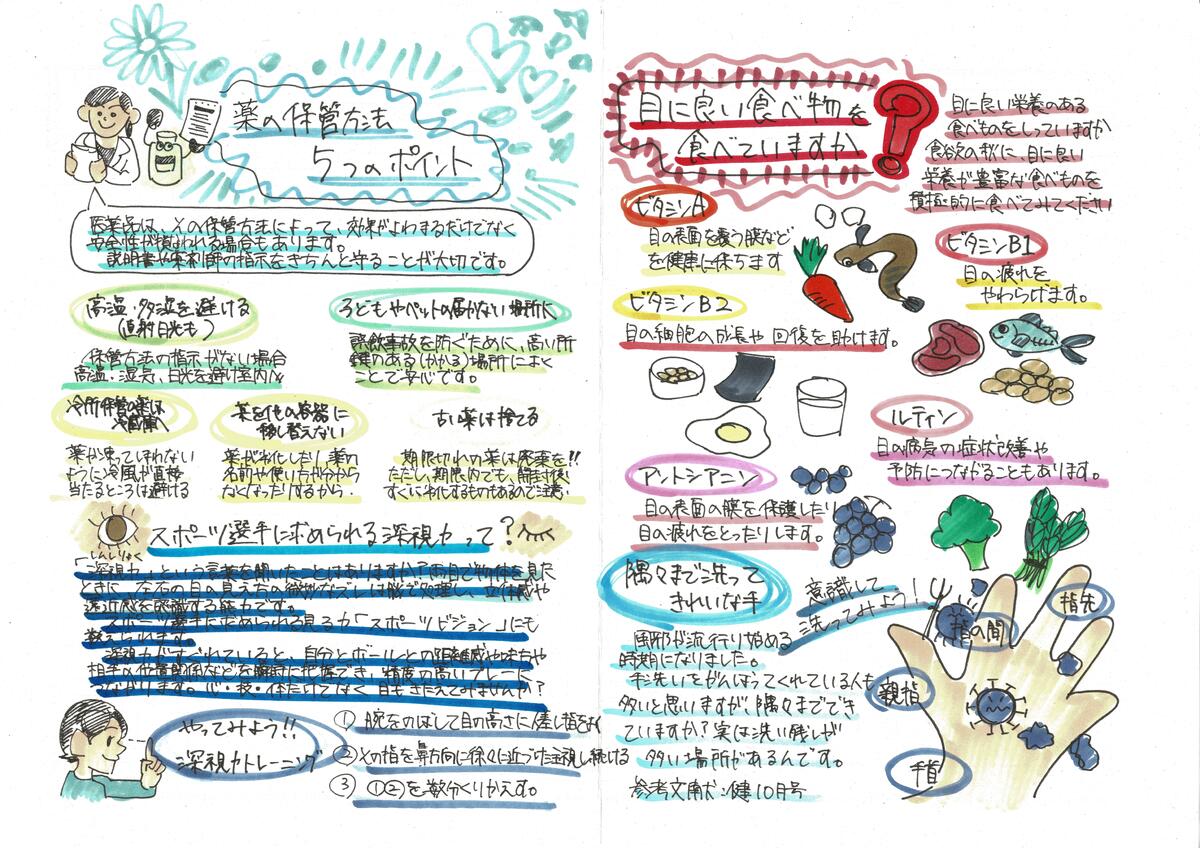 薬の保管方法
5つのポイント
医薬品は、その保管方法によって、効果がよわまるだけでなく
安全性が損なわれる場合もあります。
説明書や薬剤師の指示をきちんと守ることが大切です。
高温・多湿を避ける
(直射日光も)
保管方法の指示がない場合
高温・湿気、日光を避け室内へ
子どもやペットの届かない場所に
誤飲事故を防ぐために、高い所
鍵のある(かかる)場所におく
ことで安心です。
冷所保管の薬は
冷蔵庫へ
薬が凍ってしまわない
ように冷風が直接
当たるところは避ける
薬を他の容器に
移し替えない
薬が劣化したり、薬の
名前や使い方が分から
なくなったりするから。
古い薬は捨てる
期限切れの薬は廃棄を!!
ただし、期限内でも、開封後
すぐに劣化するものもあるので注意。
スポーツ選手に求められる深視力って?
しんしりょく
「深視力」という言葉を聞いたことはありますか?両目で物体を見た
ときに、左右の目の見え方の微妙なズレは脳で処理し、立体感や
遠近感を認識する能力です。
スポーツ選手に求められる見る力「スポーツビジョン」にも
数えられます。
深視力がすぐれていると、自分とボールとの距離感や味方や
相手の位置関係などを瞬時に把握でき、精度の高いプレーに
つながります。心・技・体だけでなく 目もきたえてみませんか?
やってみよう!!
深視力トレーニング
① 腕をのばして目の高さに人差し指をおく
② その指を鼻方向に徐々に近づけ注視し続ける
③ ①②を数分くりかえす。
目に良い食べ物を
食べていますか
目に良い栄養のある
食べものをしっていますか
食欲の秋に、目に良い
栄養が豊富な食べものを
積極的に食べてみてください
ビタミンA
目の表面を覆う膜など
を健康に保ちます
ビタミンB1
目の疲れを
やわらげます。
ビタミンB2
目の細胞の成長や 回復を助けます。
ルテイン
目の病気の症状改善や
予防につながることもあります。
アントシアニン
目の表面の膜を保護したり
目の疲れをとったりします。
隅々まで洗って
きれいな手
意識して
洗ってみよう!
風邪が流行り始める
時期になりました。
手洗いをがんばってくれている人も
多いと思いますが、隅々までで き
ていますか?実は洗い残しが
多い場所があるんです。
参考文献:健10月号
指先
指の間
親指
手首